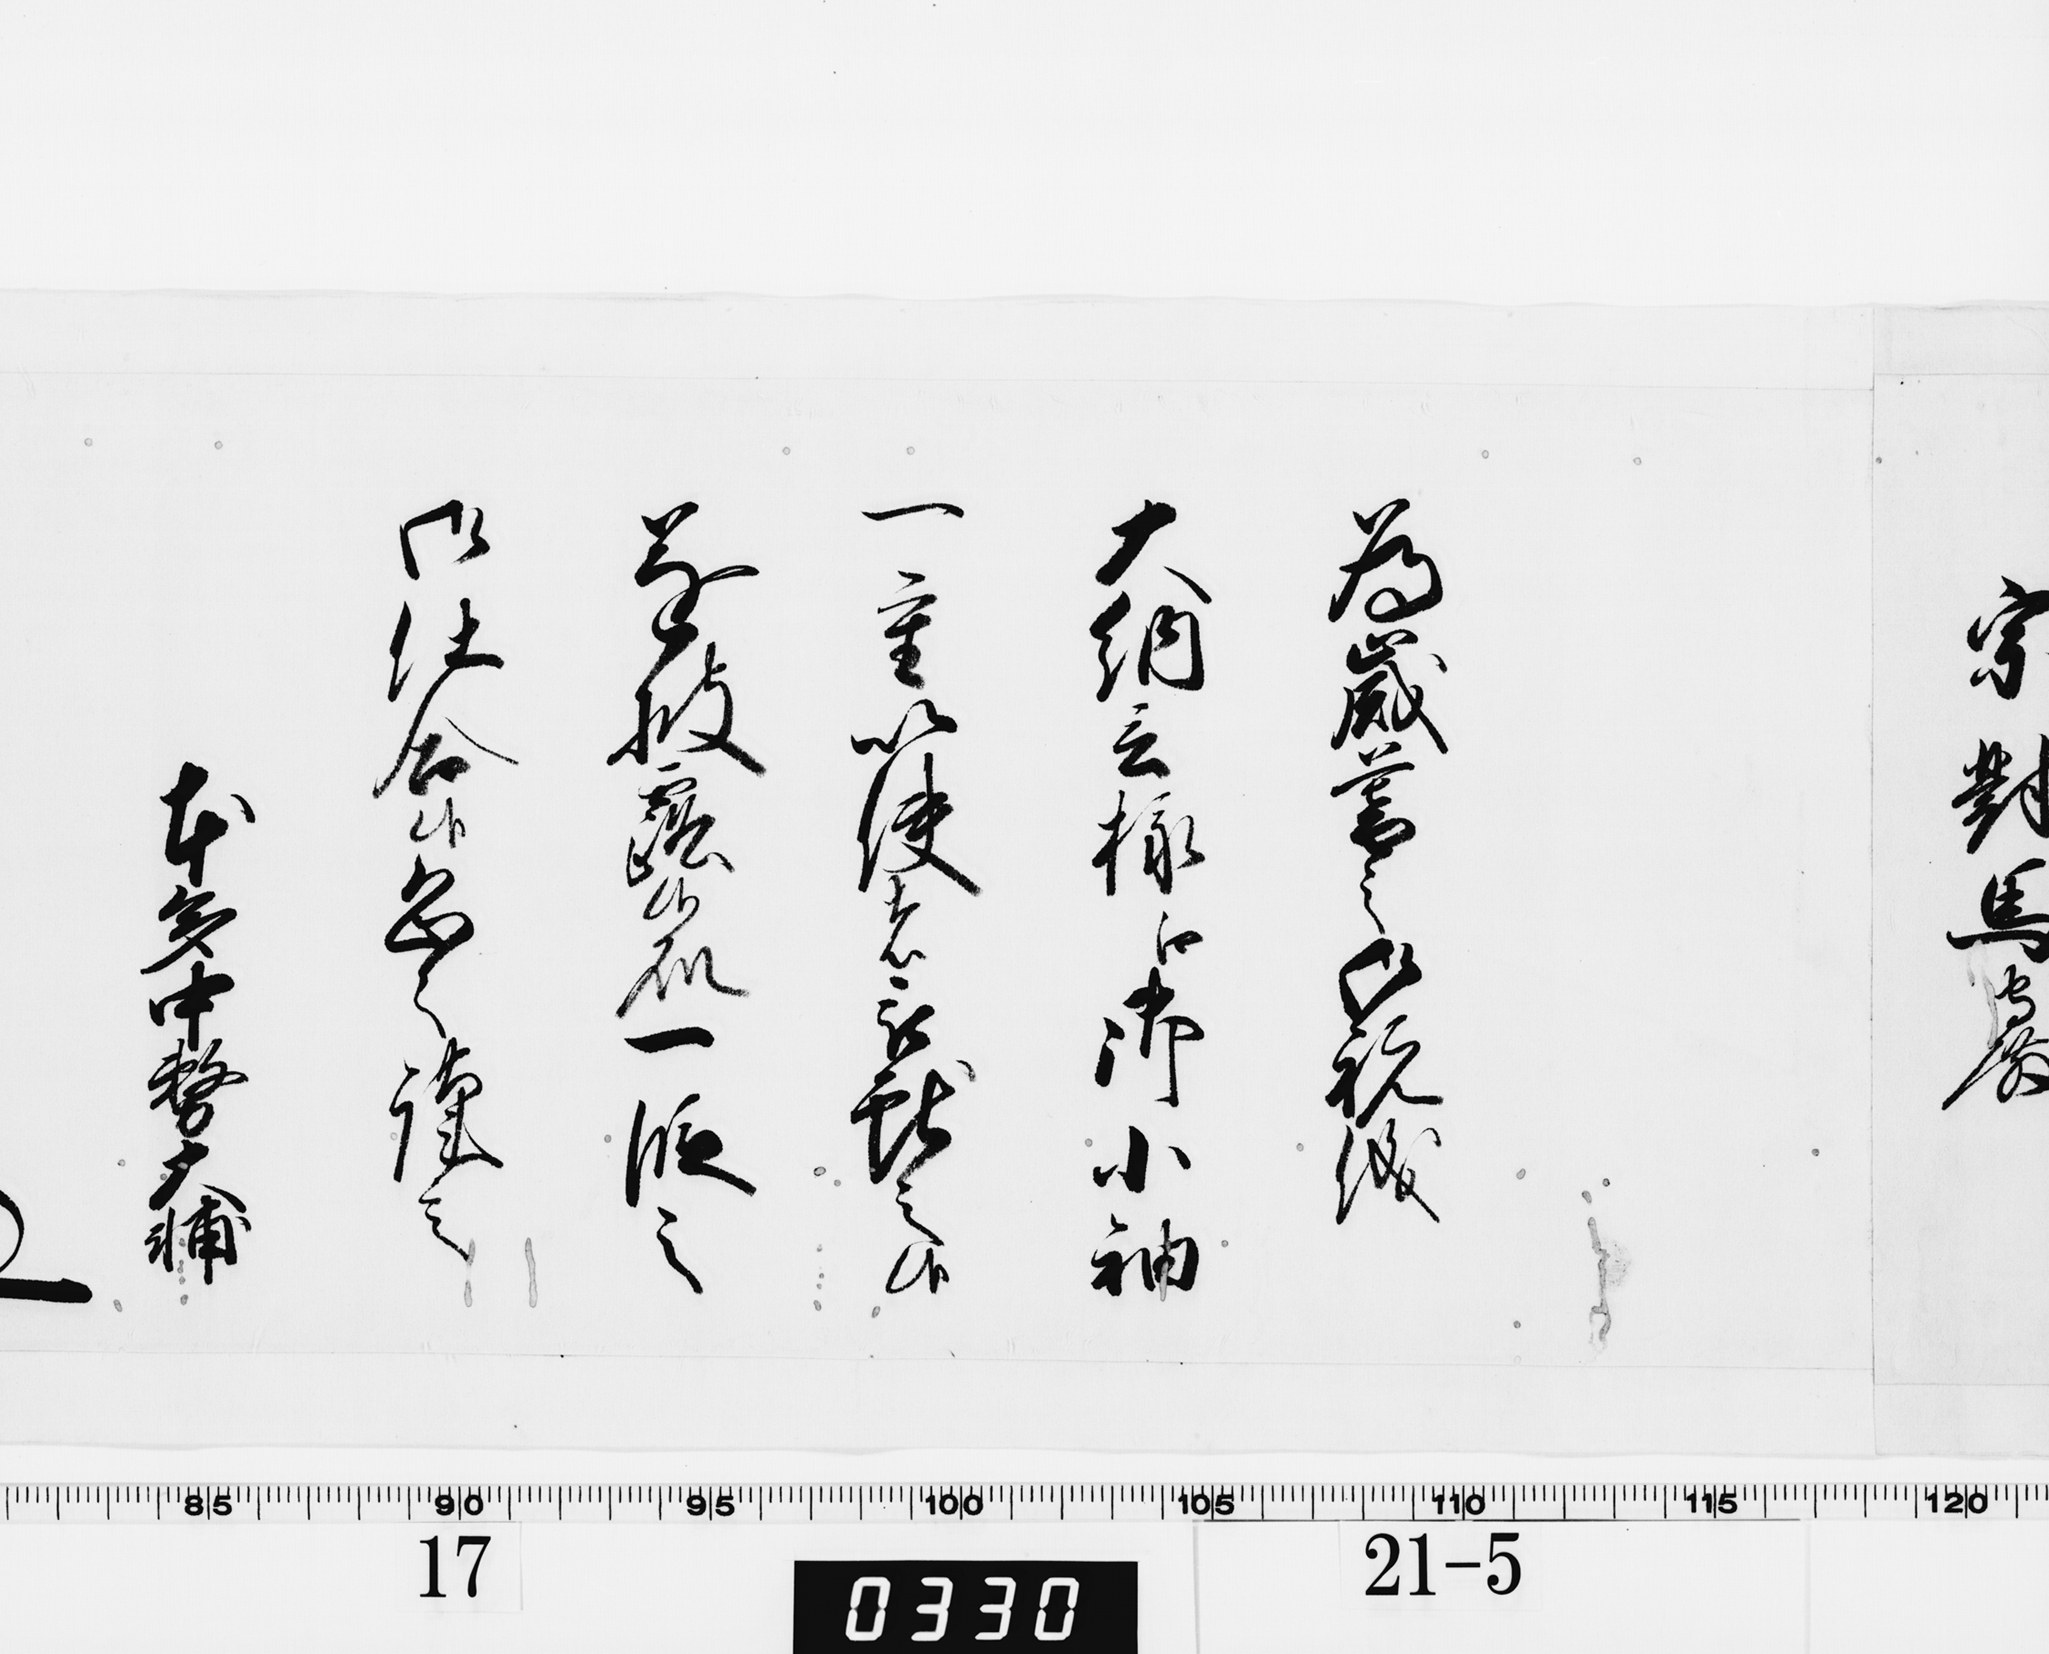 宗對馬守殿
為歳暮之御祝儀
大納言様江御小袖
一重以使者被献之候
遂披露候処一段之
御仕合候恐々謹言
本多中務大輔
85 90 95 100 105 110 115 120
17 21-5
0330